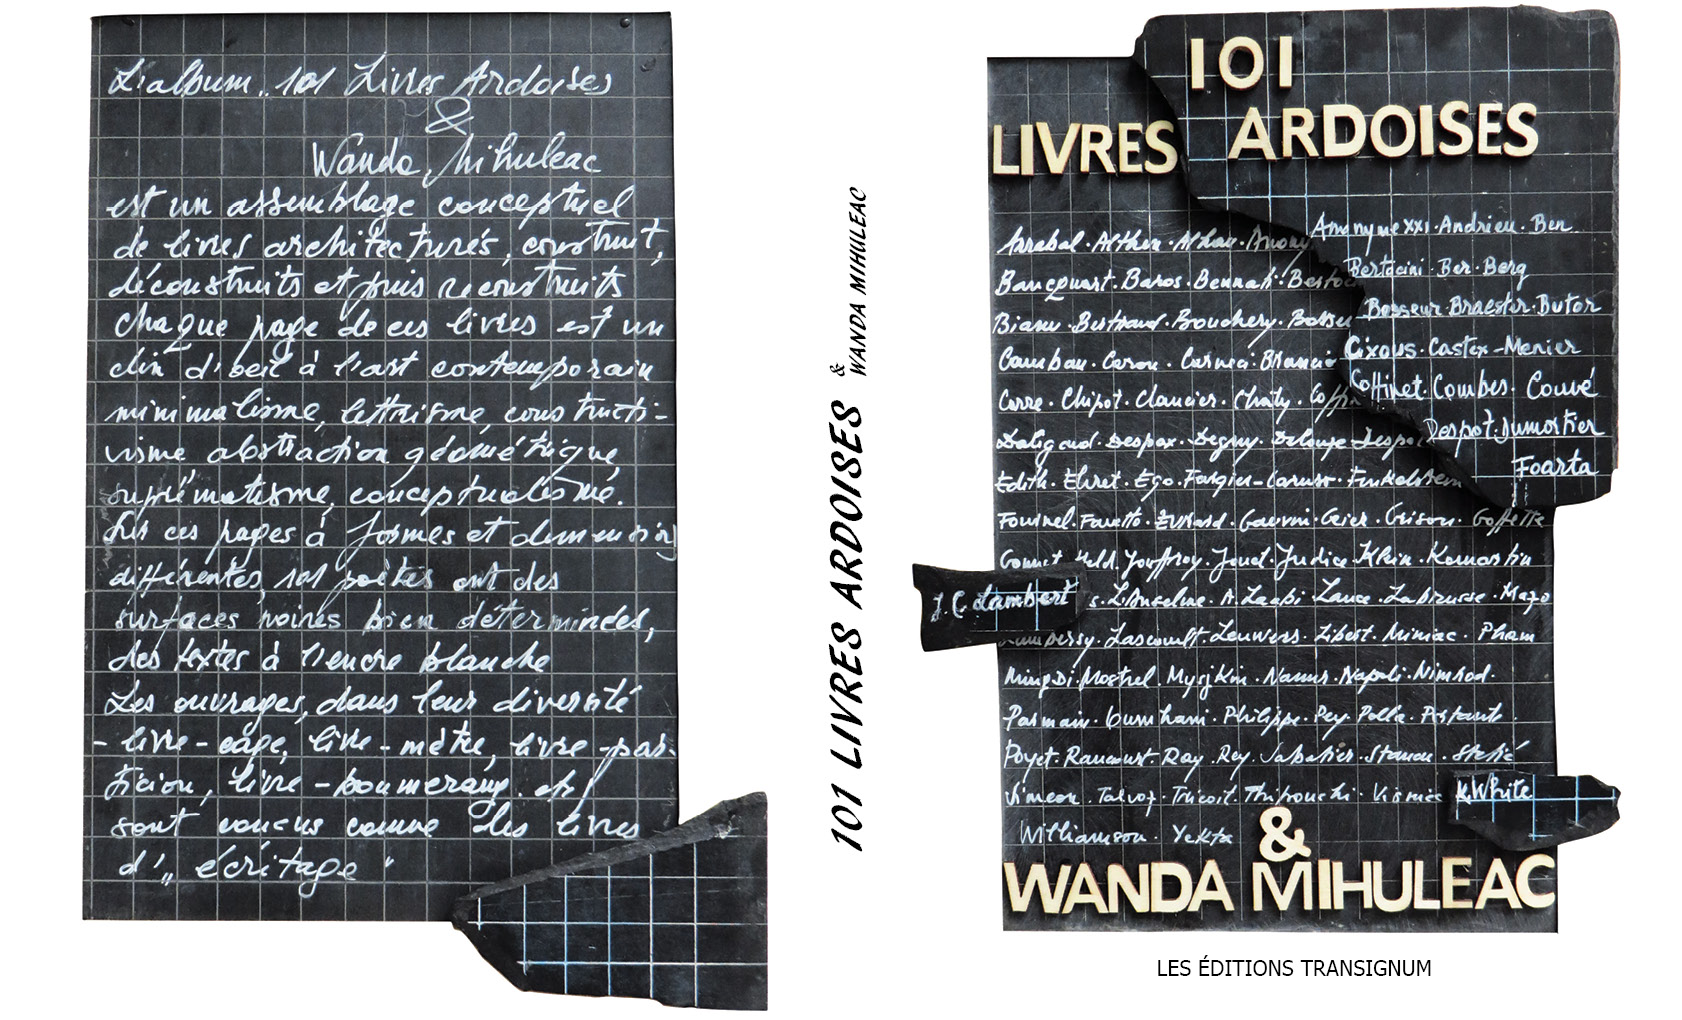 L'album „ 101 Livres Ardoises
&
Wanda Mihuleac
est un assemblage conceptuel
de livres architecturés, construit,
déconstruits et puis reconstruits
chaque page de ces livres est un
clin d'oeil à l'art contemporain
minimalisme, lettrisme, constructi-
visme abstraction géométrique,
suprématisme, conceptualisme.
Sur ces pages à formes et dimensions
différentes, 101 poètes ont des
surfaces noires bien déterminées,
des textes à l'encre blanche
Les ouvrages, dans leur diversité
- livre-cage, livre-mètre, livre-par-
ticion, livre-boumerang. etc
sont concus comme des livres
d'„ écritage "
101 LIVRES ARDOISES & WANDA MIHULEAC
101
LIVRES ARDOISES
Arrabal. Althen. Athan. Anony
Anonyme XXI. Andrieu. Ben
Bancquart. Baros. Bennati. Bertoc
Bertocini. Ber. Berg
Bianu. Bertrand. Bouchery. Bosseu
Bosseur. Braester. Butor
Cambau. Caron. Carnici. Brancie
Cixous. Castex-Menier
Corre. Chipot. Clancier. Choty. Coffin
Coffinet. Combes. Couvé
Daligaud. Despax. Deguy. Delouze. Despot
Despot. Dumortier
Edith. Ehret. Ego. Fargier-Caruso. Finkelstein
Foarta
Fournel. Favetto. Gauvni. Geier. Grison. Goffette
Gonnet. Held. Jouffroy. Jouet. Judice. Klein. Komartin
J. C. Lambert
s. L'Anselme. A. Laabi. Lance. Labrusse. Mazo
Lamberssy. Lascoult. Leuwers. Libert. Miniac. Pham
MingDi. Mostrel. Mysjkin. Namur. Napoli. Nimrod.
Parmain. Oumhani. Philippe. Pey. Pollie.
Poyet. Rancourt. Ray. Rey. Sabatier. Stancu. Stétié
Vimeon. Talvoz. Tricoit. Thipouchi. Visniec
K. White
Williamson. Yekta
&
WANDA MIHULEAC
LES ÉDITIONS TRANSIGNUM